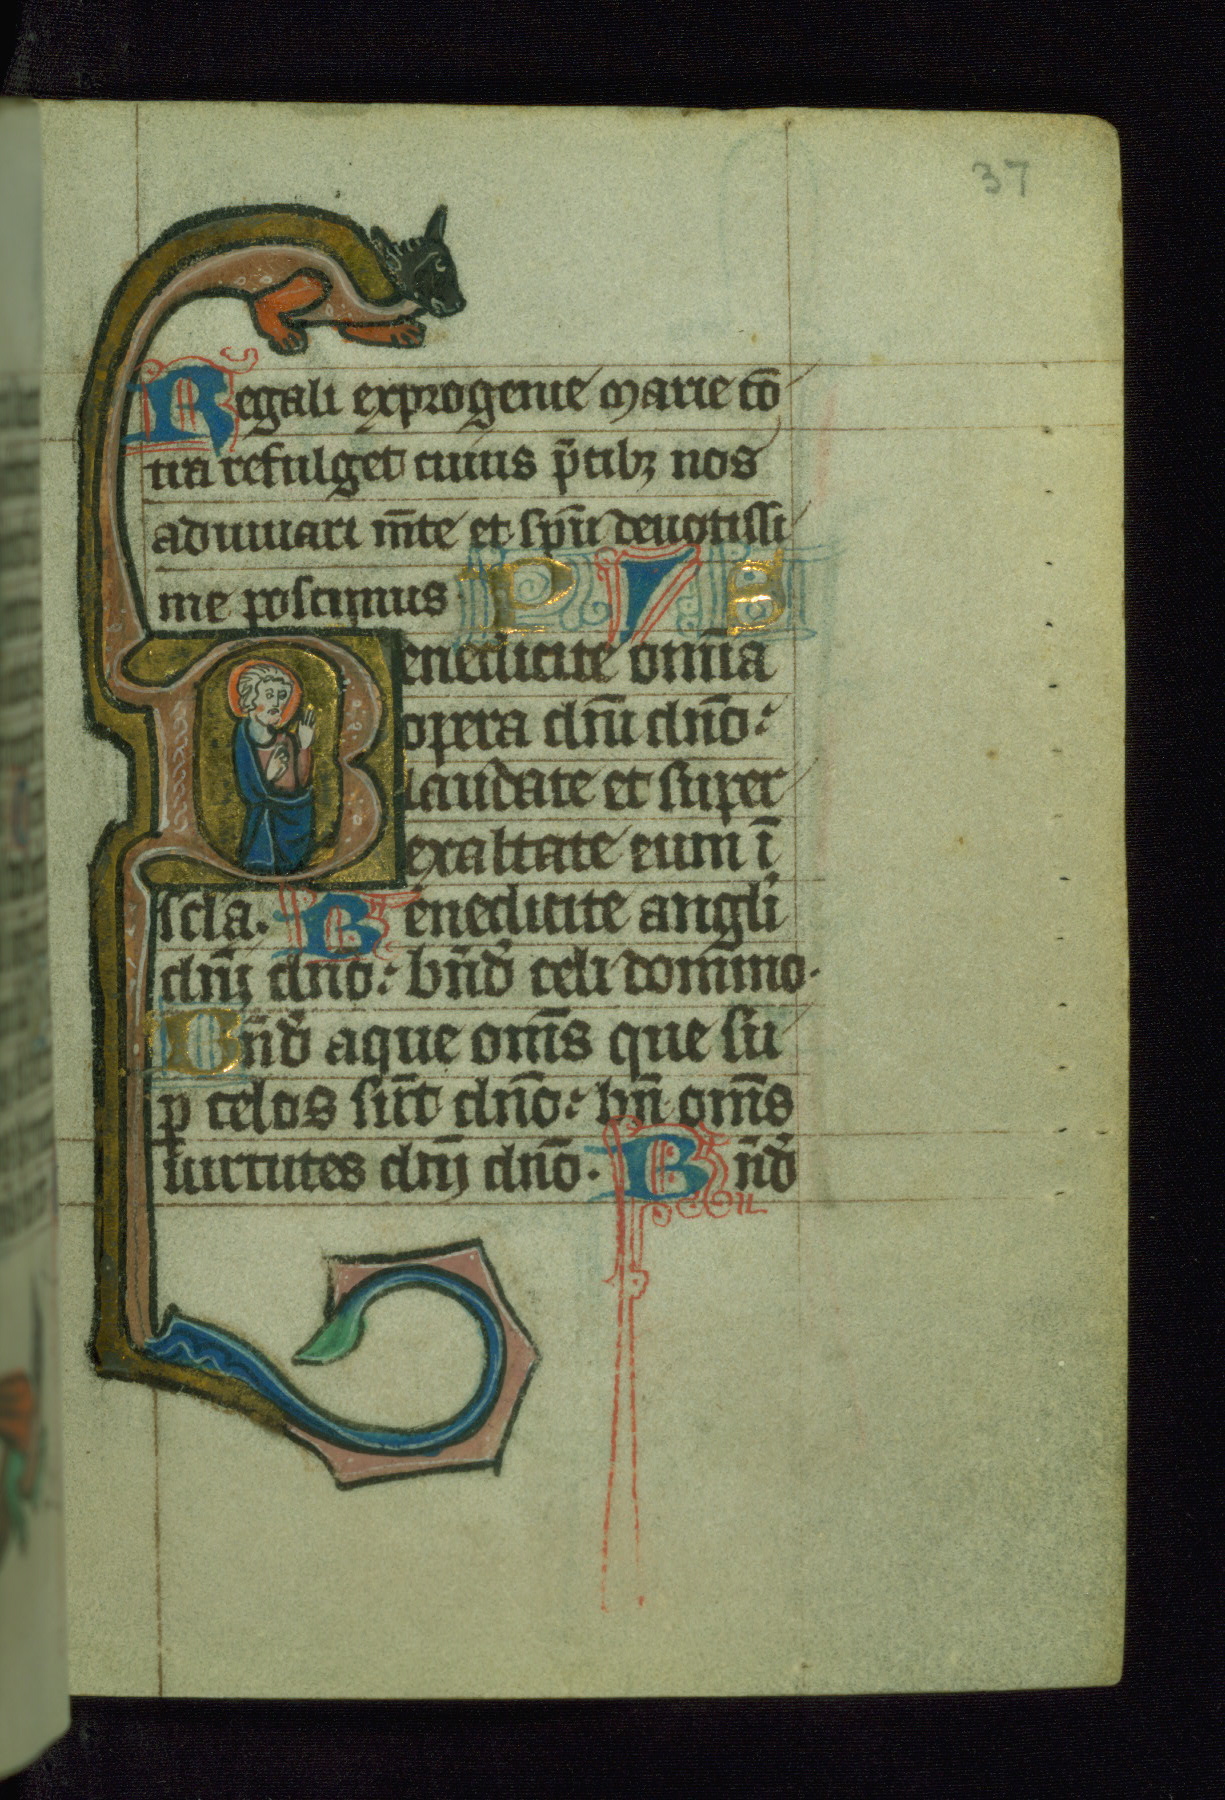 37
Regali exprogenie marie co̅
ria refulget cuius p̅cibꝫ nos
adiuuari m̅te et sp̅u deuotissi
me poscimus. P S
Benedicite om̅ia
opera dn̅i dn̅o:
laudate et super
exaltate eum i̅
scl̅a. Benedicite angl̅i
dn̅j dn̅o: bn̅d̅ celi domino.
Bn̅d̅ aque om̅s que su
ꝑ celos su̅t dn̅o: bn̅ om̅s
uirtutes dn̅j dn̅o. Bn̅d̅